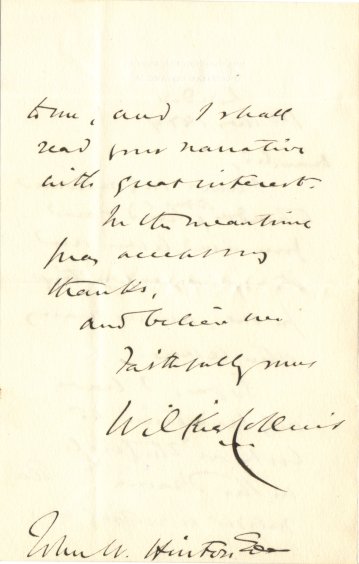 to me, and I shall
read your narrative
with great interest.
In the meantime
pray accept my
thanks,
and believe me
Faithfully yours
Wilkie Collins
John W. Hinton Esqre